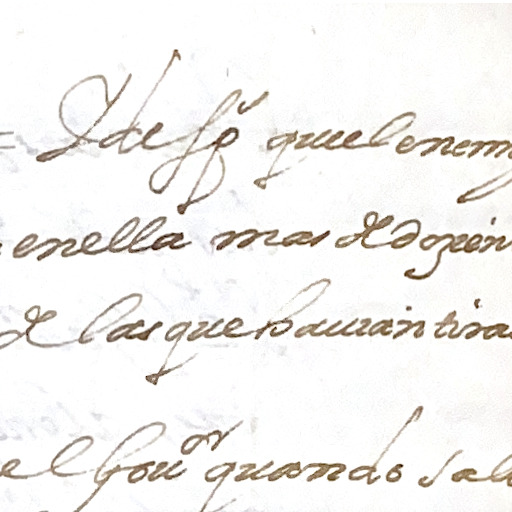 = Y de sp^u que el enemy
en ella mas de dozien
de las que hauian tira
el Gou^or quando sali